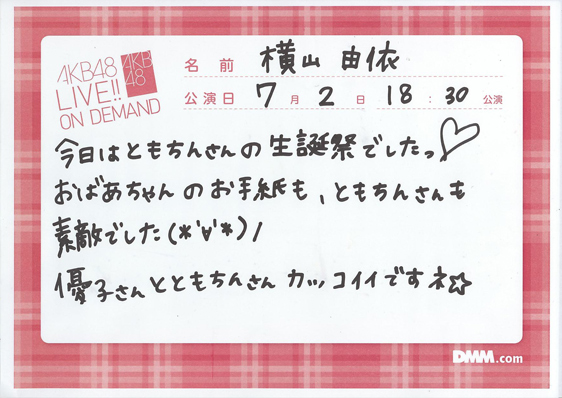 AKB48
LIVE!!
ON DEMAND
AKB
48
名前 横山 由依
公演日 7月2日 18:30公演
今日はともちんさんの生誕祭でしたっ♡
おばあちゃんのお手紙も、ともちんさんも
素敵でした(*'∀'*)/
優子さんとともちんさんカッコイイですネ☆
DMM.com